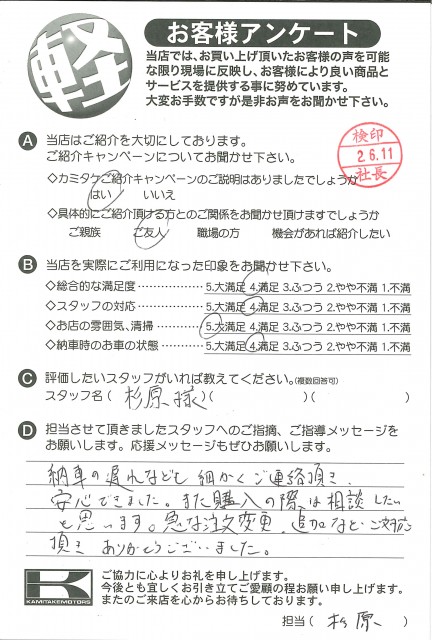 軽
お客様アンケート
当店では、お買い上げ頂いたお客様の声を可能
な限り現場に反映し、お客様により良い商品と
サービスを提供する事に努めています。
大変お手数ですが是非お声をお聞かせ下さい。
A 当店はご紹介を大切にしております。
ご紹介キャンペーンについてお聞かせ下さい。
検印
2.6.11
社長
◇カミタケご紹介キャンペーンのご説明はありましたでしょうか
はい いいえ
◇具体的にご紹介頂ける方とのご関係をお聞かせ頂けますでしょうか
ご親族 ご友人 職場の方 機会があれば紹介したい
B 当店を実際にご利用になった印象をお聞かせ下さい。
◇総合的な満足度……………5.大満足 4.満足 3.ふつう 2.やや不満 1.不満
◇スタッフの対応……………5.大満足 4.満足 3.ふつう 2.やや不満 1.不満
◇お店の雰囲気、清掃………5.大満足 4.満足 3.ふつう 2.やや不満 1.不満
◇納車時のお車の状態………5.大満足 4.満足 3.ふつう 2.やや不満 1.不満
C 評価したいスタッフがいれば教えてください。(複数回答可)
スタッフ名(杉原様)( )( )
D 担当させて頂きましたスタッフへのご指摘、ご指導メッセージを
お願いします。応援メッセージもぜひお願いします。
納車の遅れなども細かくご連絡頂き、
安心できました。また購入の際は相談したい
と思います。急な注文変更、追加など、ご対応
頂き ありがとうございました。
K
KAMITAKEMOTORS
ご協力に心よりお礼を申し上げます。
今後とも宜しくお引き立てご愛顧の程お願い申し上げます。
またのご来店を心からお待ちしております。
担当(杉原)